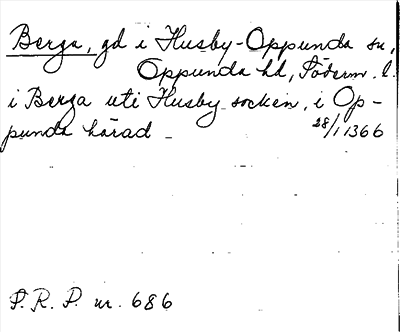 Berga, gd i Husby-Oppunda sn,
Oppunda hd, Söderm. l.
i Berga uti Husby socken, i Op-
punda härad _ 28/1 1366
P. R. P. nr. 686